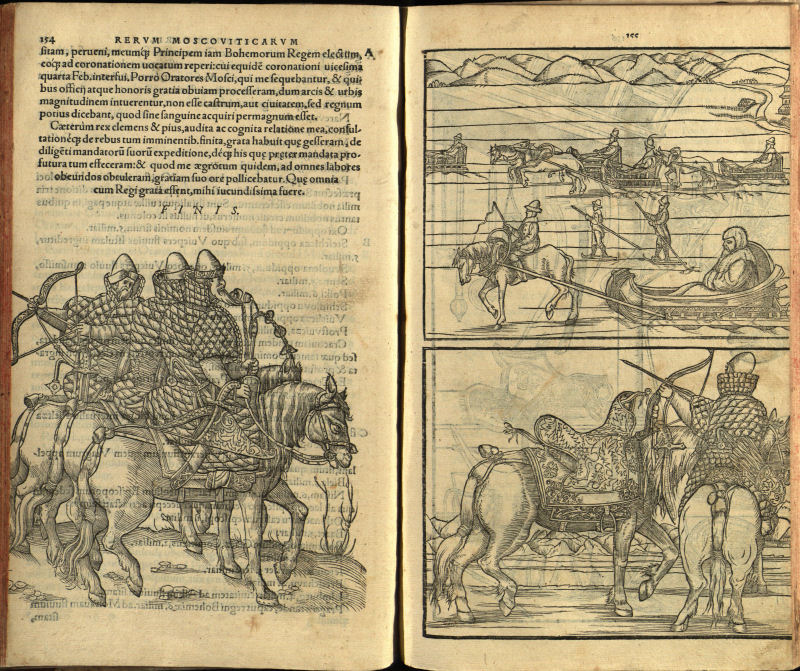 154 RERVM MOSCOVITICARVM
sitam, perueni, meumq́; Principem iam Bohemorum Regem electum, A
eoq́; ad coronationem uocatum reperi: cui equidē coronationi uicesima
quarta Feb. interfui. Porrò Oratores Mosci, qui me sequebantur, & qui-
bus officij atque honoris gratia obuiam processeram, dum arcis & urbis
magnitudinem intuerentur, non esse castrum, aut ciuitatem, sed regnum
potius dicebant, quod sine sanguine acquiri permagnum esset.
Cæterùm rex clemens & pius, audita ac cognita relatione mea, consul-
tationéq́; de rebus tum imminentib. finita, grata habuit quę gesseram, de
diligēti mandatorū suorū expeditione, déq́; his quę preter mandata pro-
futura tum effeceram: & quod me ægrotum quidem, ad omnes labores
obeundos obtuleram, gratiam suo ore pollicebatur. Quę omnia
cum Regi grata essent, mihi iucundissima fuere.
FINIS.
155